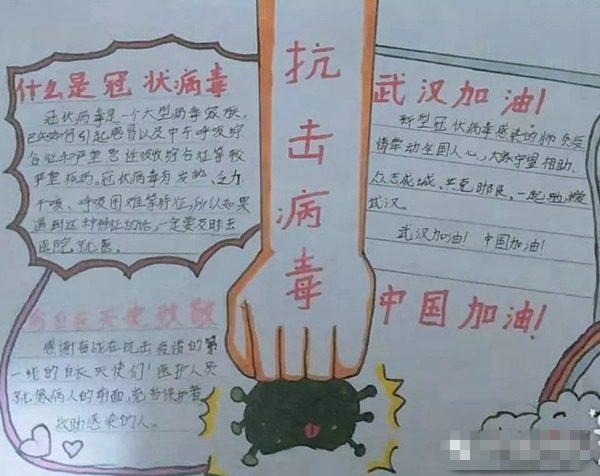 什么是冠状病毒
冠状病毒是一个大型病毒家族,
已知可引起感冒以及中东呼吸综
合征和严重急性呼吸综合征等较
严重疾病。冠状病毒有发热、乏力、
干咳、呼吸困难等特征,所以如果
遇到这种特征的话,一定要及时去
医院就医。
抗击病毒
武汉加油!
新型冠状病毒感染的肺炎疫
情牵动全国人心,大家守望相助、
众志成城、共克时艰,一起
武汉。
武汉加油! 中国加油!
中国加油!
向白衣天使致敬
感谢奋战在抗击疫情的第
一线的白衣天使们!医护人员
病人的前面,
救助感染的人。